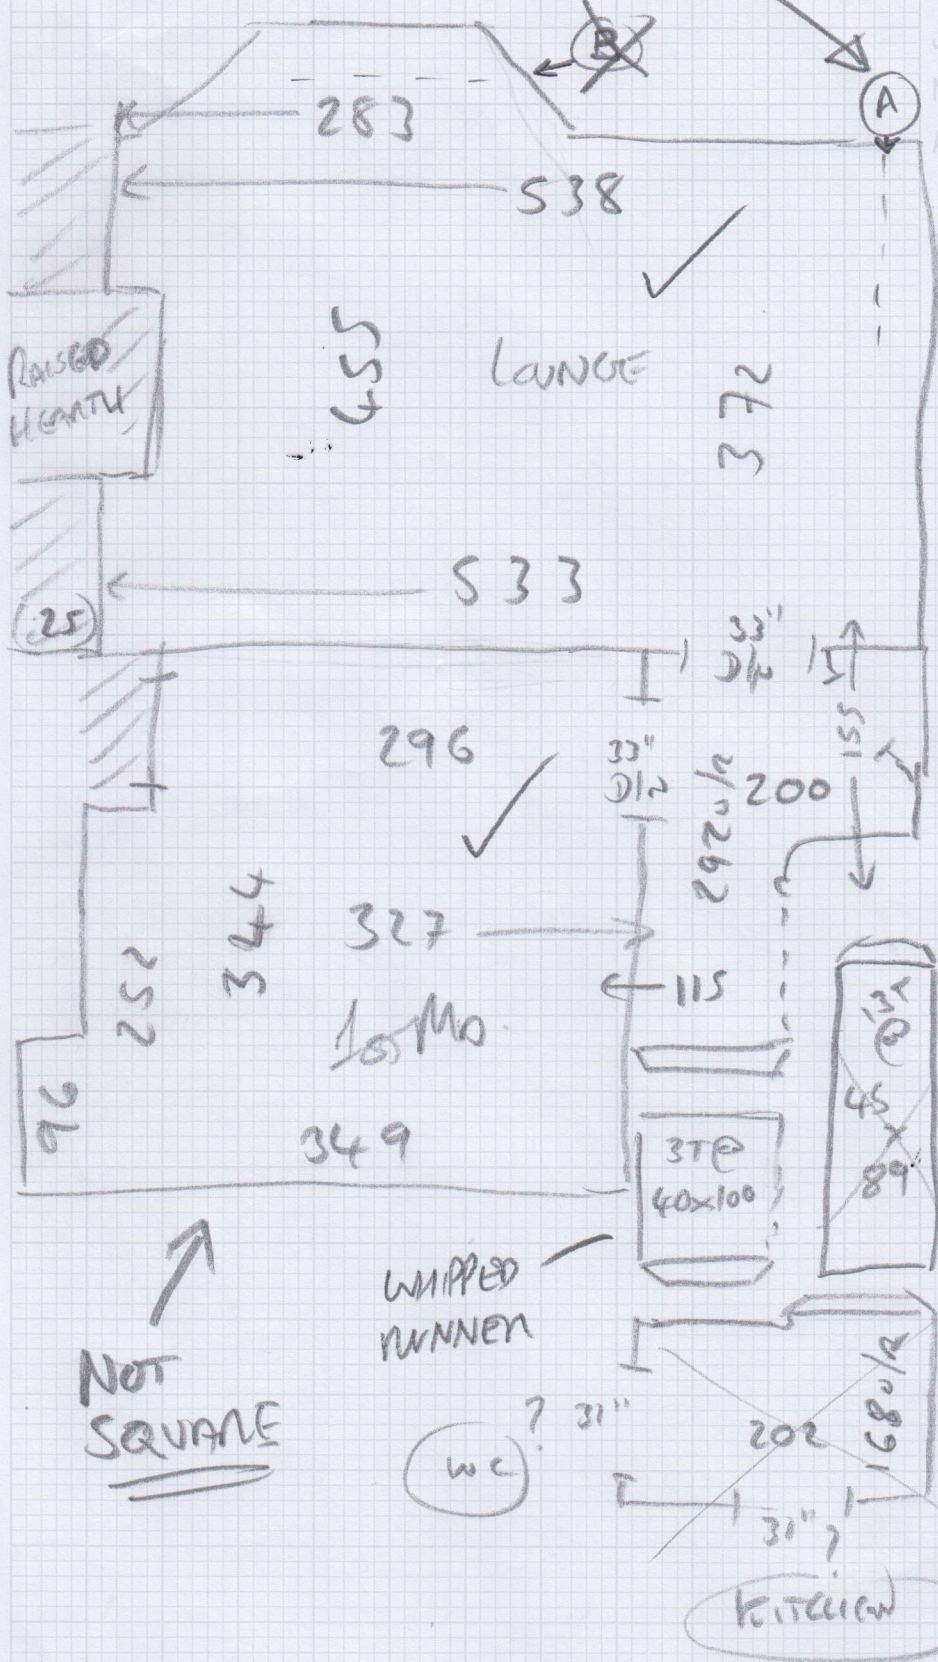 B
A
283
538
RAISED
HEARTH
455
LOUNGE
372
533
25
33"
D/R
296
33"
D/R
292 U/R
200
155
344
327
252
115
96
349
3T@
40x100
45
x
89
WHIPPED
RUNNER
NOT
SQUARE
? 31"
WC
202
168 U/R
31" ?
KITCHEN